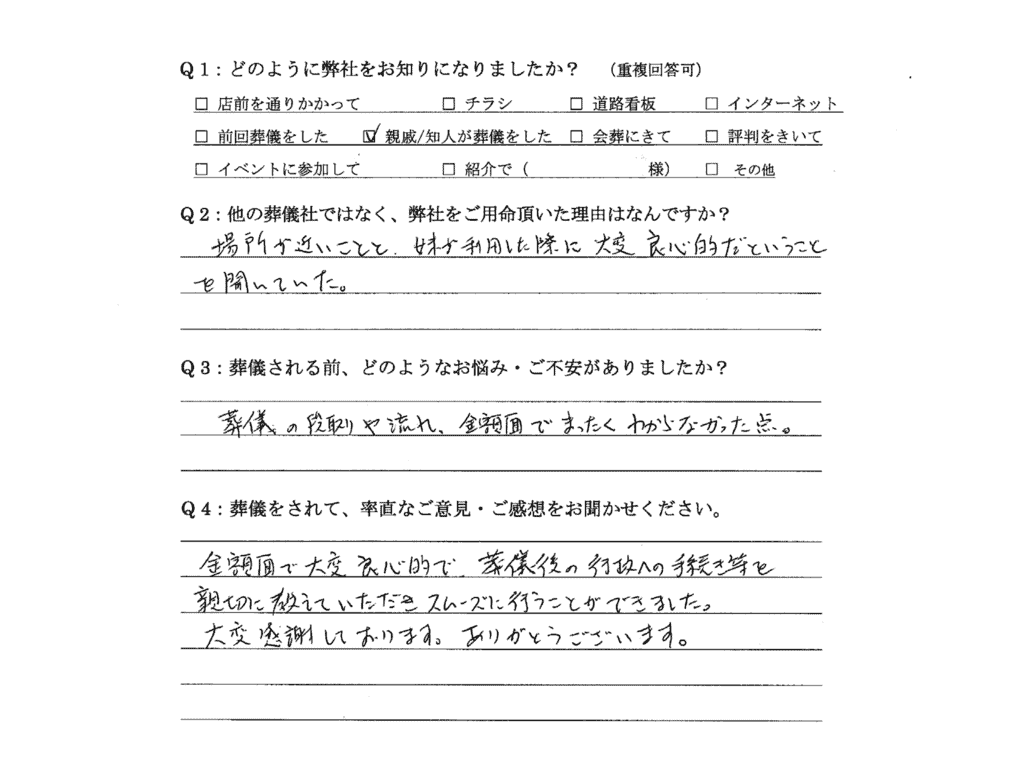 Q1：どのように弊社をお知りになりましたか？ （重複回答可）
□ 店前を通りかかって □ チラシ □ 道路看板 □ インターネット
□ 前回葬儀をした ☑ 親戚/知人が葬儀をした □ 会葬にきて □ 評判をきいて
□ イベントに参加して □ 紹介で（ 様） □ その他
Q2：他の葬儀社ではなく、弊社をご用命頂いた理由はなんですか？
場所が近いことと、妹が利用した際に大変良心的だということ
を聞いていた。
Q3：葬儀される前、どのようなお悩み・ご不安がありましたか？
葬儀の段取りや流れ、金額面でまったくわからなかった点。
Q4：葬儀をされて、率直なご意見・ご感想をお聞かせください。
金額面で大変良心的で、葬儀後の行政への手続き等を
親切に教えていただきスムーズに行うことができました。
大変感謝しております。ありがとうございます。